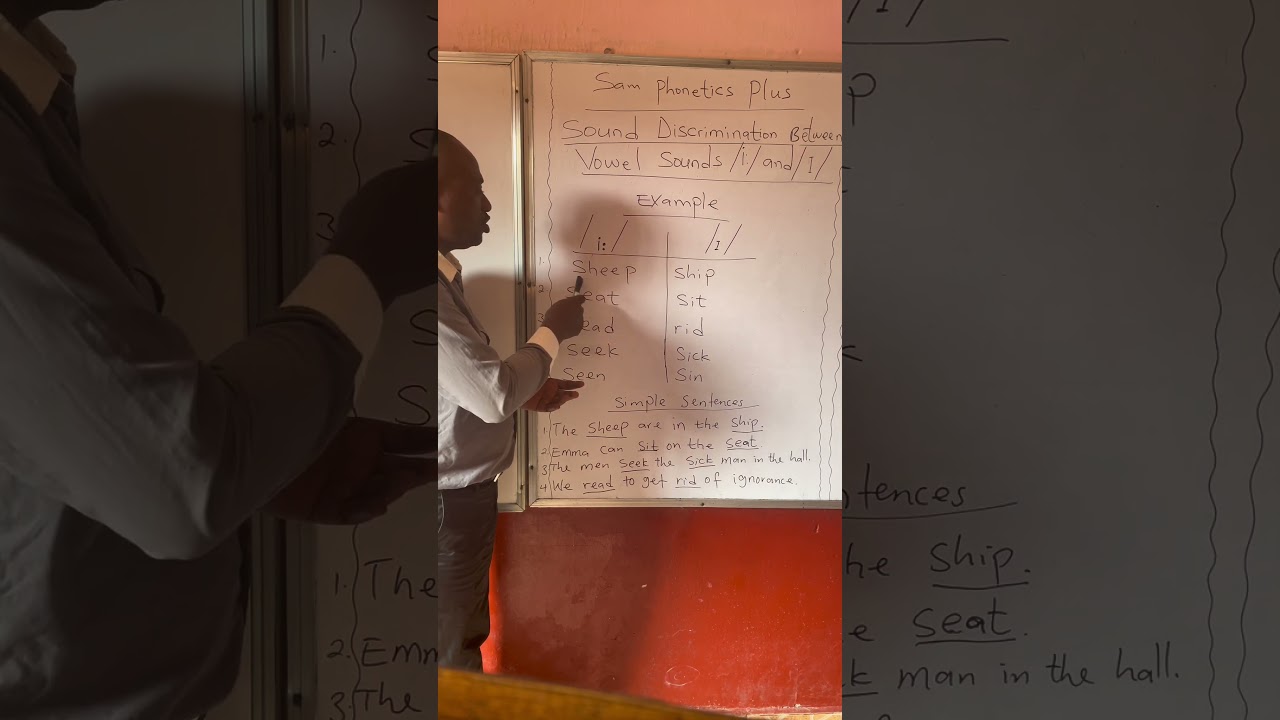 Sam Phonetics Plus
Sound Discrimination Between
Vowel Sounds /i:/ and /I/
Example
/i:/ /I/
1. Sheep Ship
2. Seat Sit
3. rid
Seek Sick
Seen Sin
Simple Sentences
1. The sheep are in the ship.
2. Emma can sit on the seat.
3. The men seek the sick man in the hall.
4. We read to get rid of ignorance.